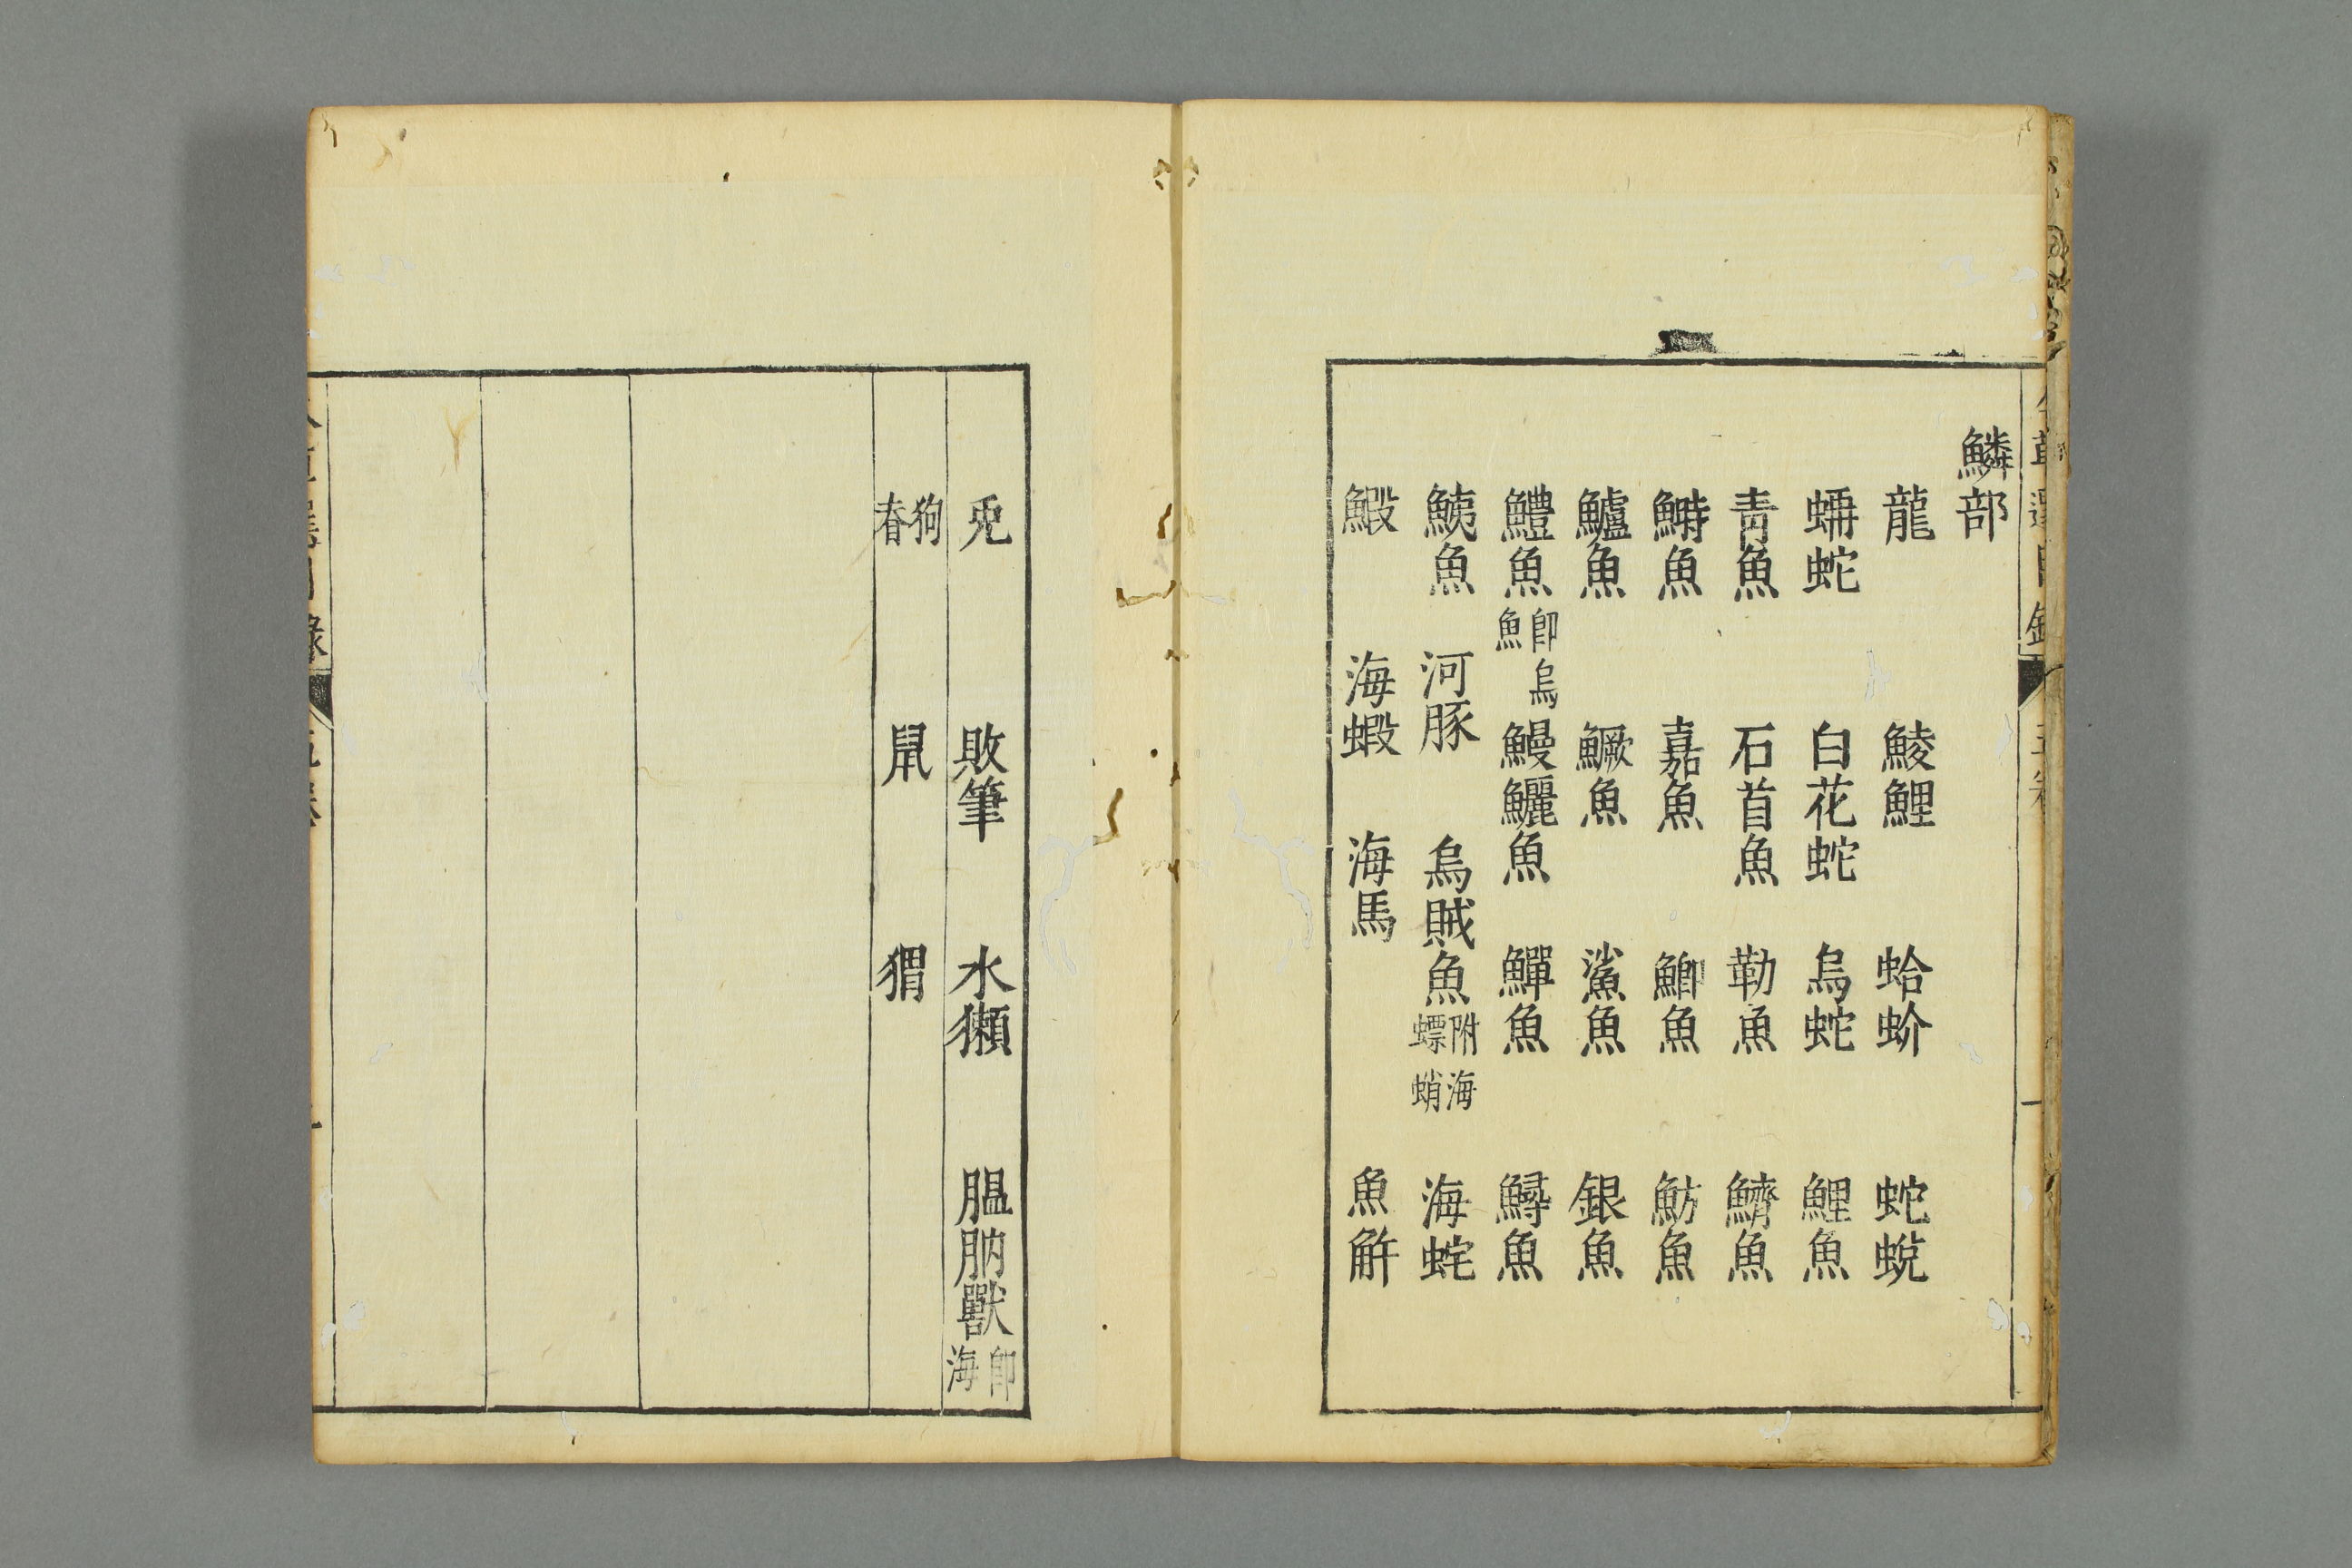 鱗部
龍 鯪鯉 蛤蚧 蛇蛻
蚺蛇 白花蛇 烏蛇 鯉魚
青魚 石首魚 勒魚 鱭魚
鰣魚 嘉魚 鯽魚 魴魚
鱸魚 鱖魚 鯊魚 銀魚
鱧魚 卽烏魚 鰻鱺魚 鱓魚 鱘魚
鮧魚 河豚 烏賊魚 附海螵蛸 海蛇
鰕 海蝦 海馬 魚觧
兎 敗筆 水獺 膃肭獸 卽海
狗 鼠 猬